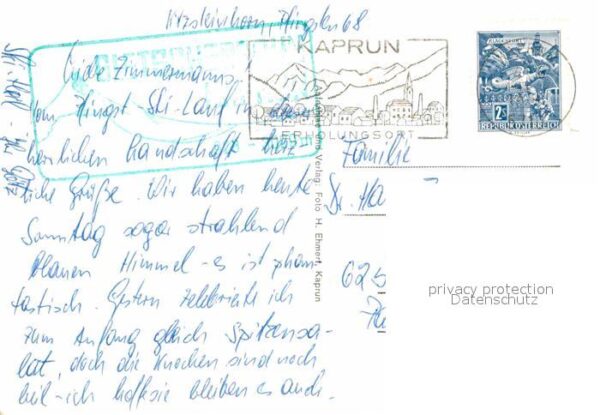 Kitzsteinhorn, Pfingsten 68
Liebe Zimmermanns!
Vom Pfingst-Ski-Lauf in dieser
herrlichen Landschaft - herz
liche Grüße. Wir haben heute
Sonntag sogar strahlend
blauen Himmel - es ist phan
tastisch. Gestern zelebrierte ich
zum Anfang gleich Spitzensa-
lat, doch die Knochen sind noch
heil - ich hoffe sie bleiben es auch.
Ski-Heil
KAPRUN
ERHOLUNGSORT
2 S
REPUBLIK ÖSTERREICH
Verlag: Foto H. Ehmert, Kaprun
Familie
Dr. Ha
62
privacy protection
Datenschutz